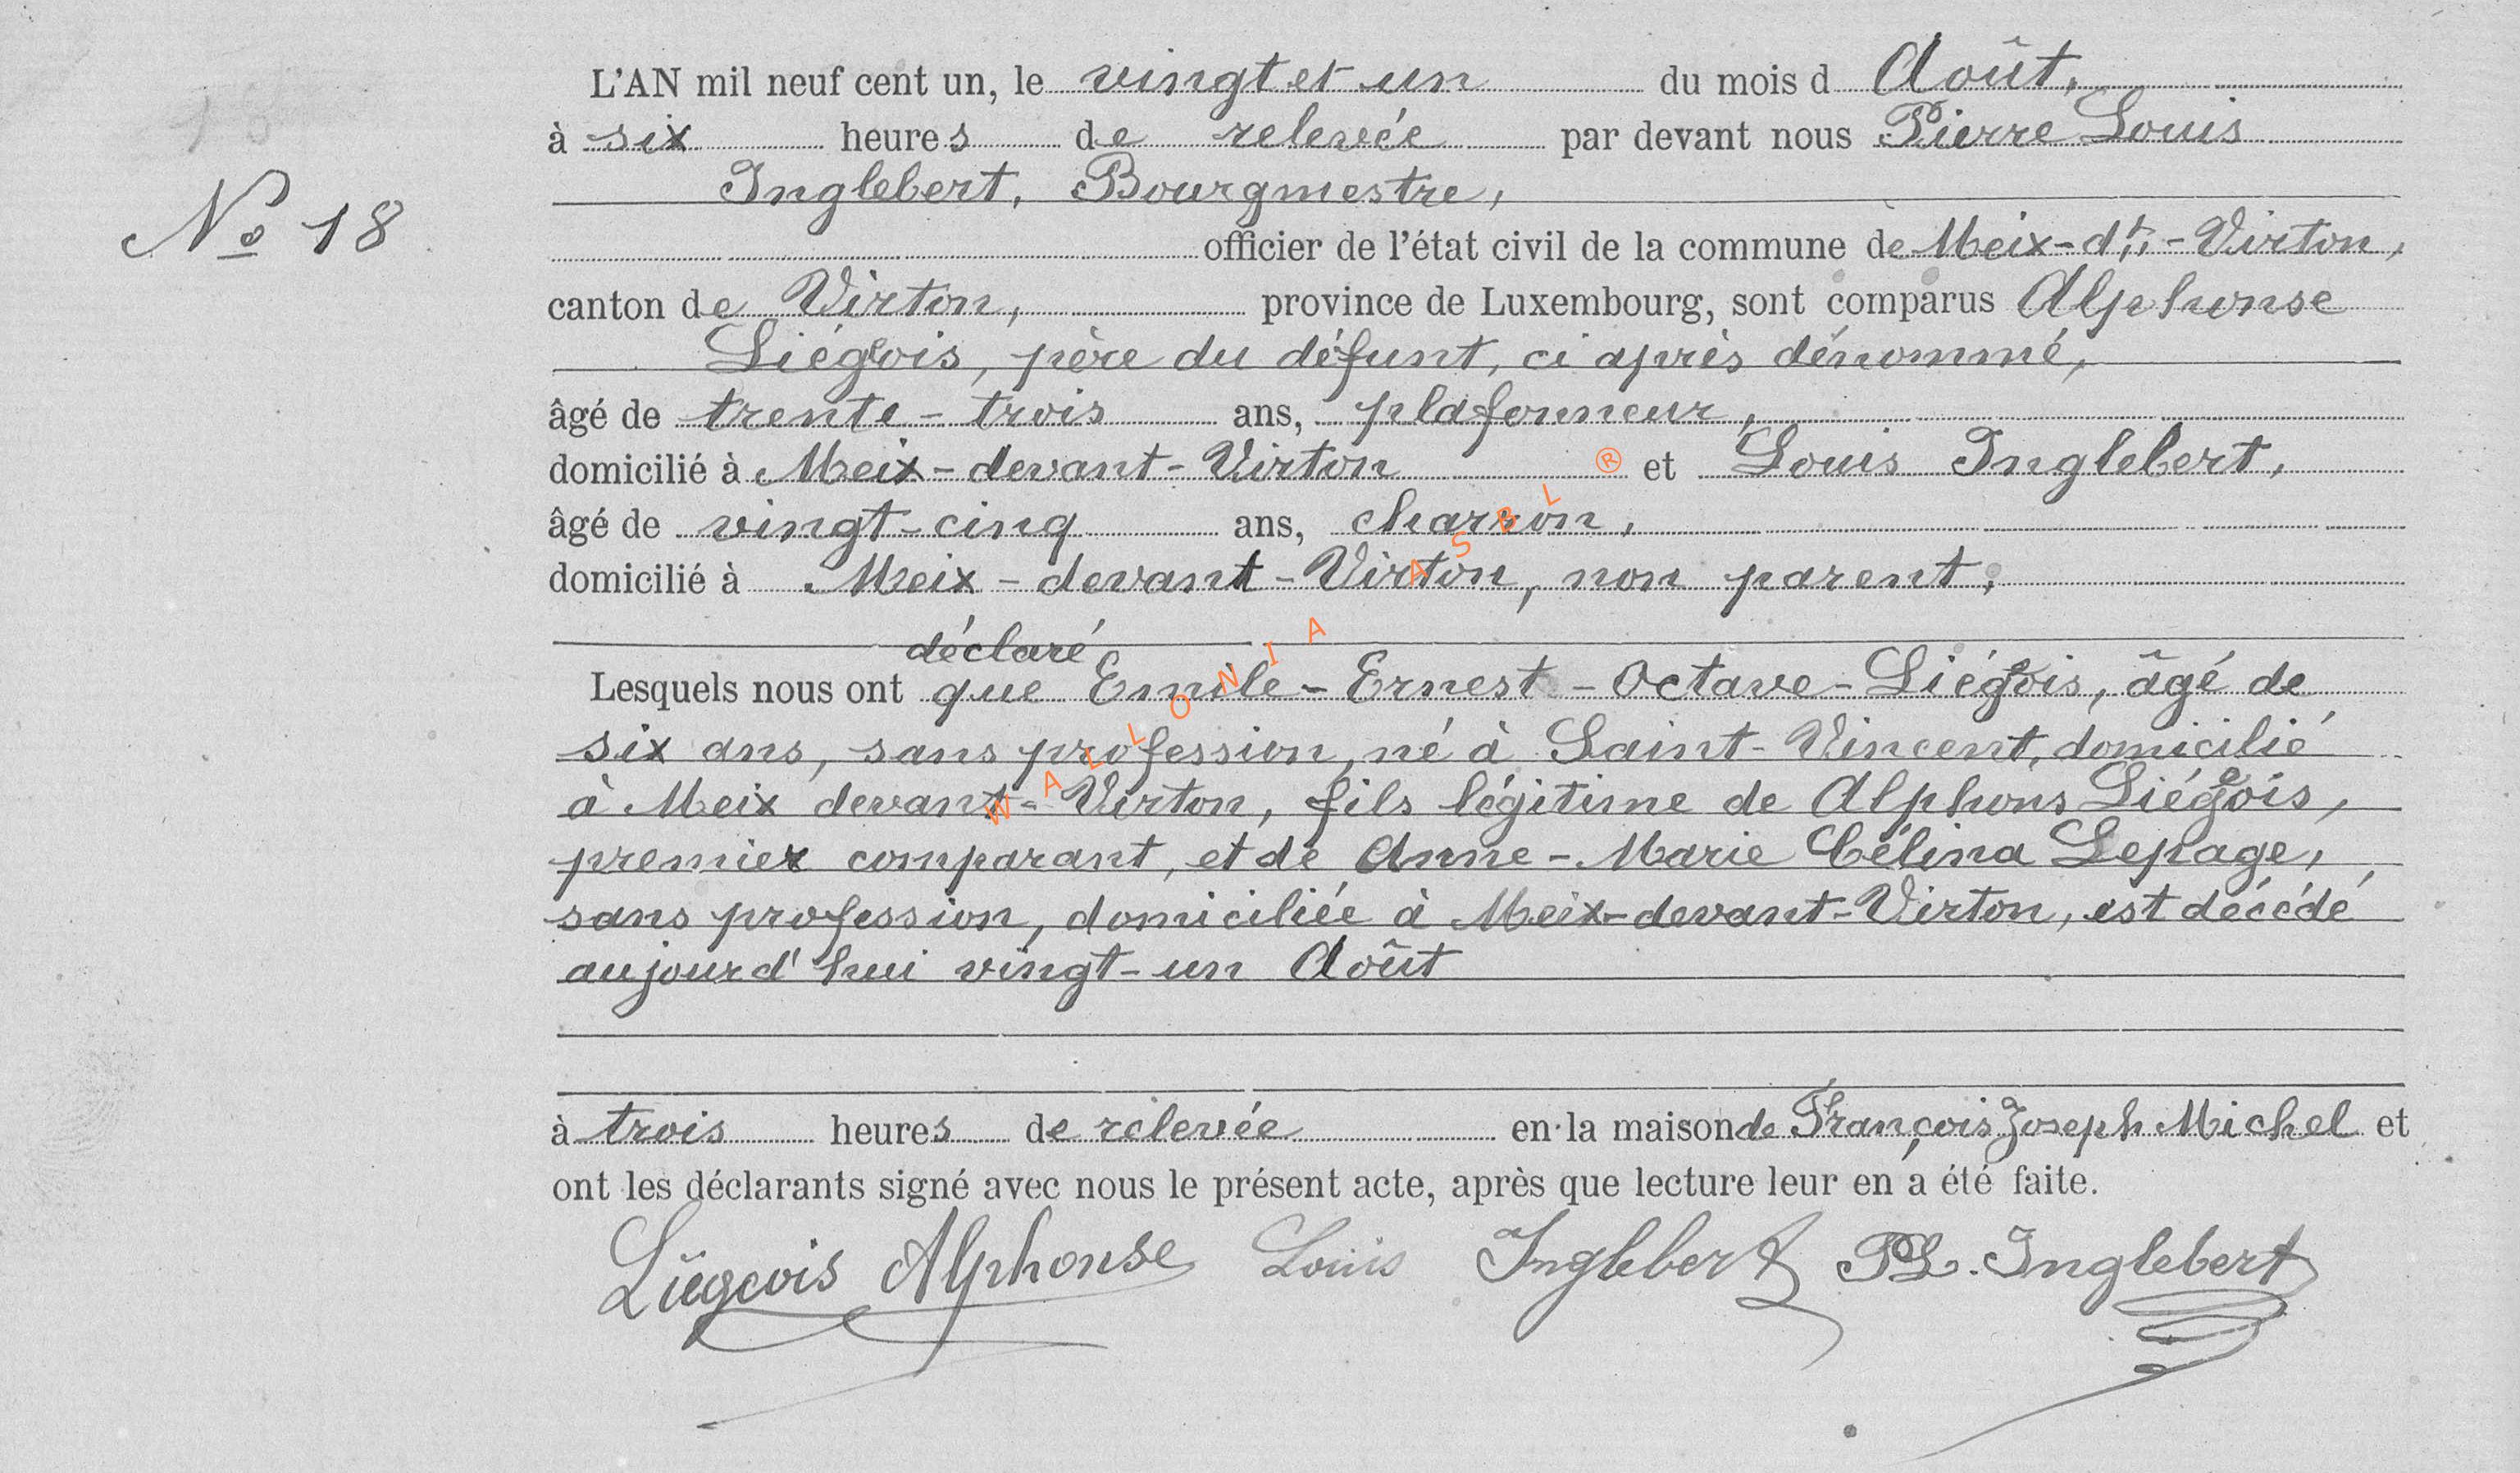 L'AN mil neuf cent un, le vingt et un du mois d Août,
à six heures de relevée par devant nous Pierre Louis
Inglebert, Bourgmestre,
N° 18
officier de l'état civil de la commune de Meix-dt-Virton,
canton de Virton, province de Luxembourg, sont comparus Alphonse
Liégeois, père du défunt, ci après dénommé,
âgé de trente-trois ans, plafonneur,
domicilié à Meix-devant-Virton et Louis Inglebert,
âgé de vingt-cinq ans, charron,
domicilié à Meix-devant-Virton, non parent,
déclaré
Lesquels nous ont que Emile-Ernest-Octave-Liégeois, âgé de
six ans, sans profession, né à Saint-Vincent, domicilié
à Meix devant-Virton, fils légitime de Alphons Liégeois,
premier comparant, et de Anne-Marie Célina Lepage,
sans profession, domiciliée à Meix-devant-Virton, est décédé
aujourd'hui vingt-un Août
à trois heures de relevée en la maison de François Joseph Michel et
ont les déclarants signé avec nous le présent acte, après que lecture leur en a été faite.
Liégeois Alphonse Louis Inglebert PL. Inglebert
WALLONIA ASBL ®